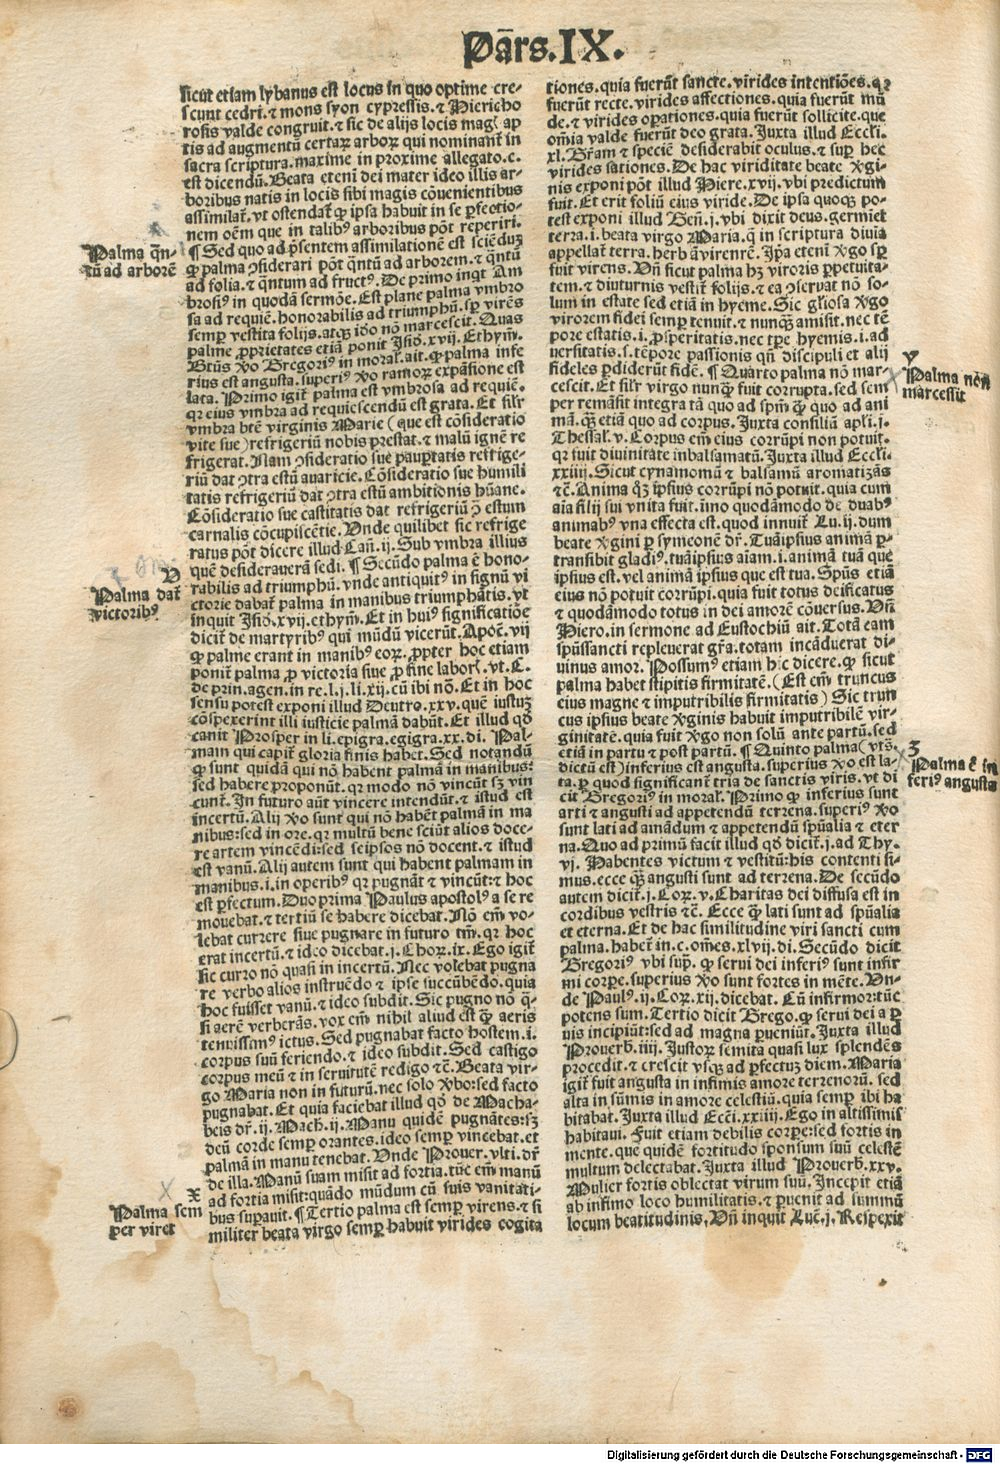 Pārs.IX.
sicut etiam lybanus est locus in quo optime cre-
scunt cedri.⁊ mons syon cypressis.⁊ Hiericho
rosis valde congruit.⁊ sic de alijs locis magꝭ ap
tis ad augmentū certaꝝ arboꝝ qui nominant᷑ in
sacra scriptura.maxime in proxime allegato.c.
est dicendū.Beata eteni dei mater ideo illis ar-
boribus natis in locis sibi magis cōuenientibus
assimilat᷑.vt ostendat᷑ ꝙ ipsa habuit in se ꝑfectio-
nem oēm que in talibꝰ arboribus pōt reperiri.
¶ Sed quo ad p̄sentem assimilationē est sciēduꝫ
ꝙ palma ꝯsiderari pōt q̄ntū ad arborem.⁊ q̄ntū
ad folia.⁊ q̄ntum ad fructꝰ.De primo inqt Am
brosiꝰ in quodā sermōe.Est plane palma vmbro
sa ad requiē.honorabilis ad triumphū.sꝑ virēs
semꝑ vestita folijs.atqꝫ idō nō marcescit.Quas
palme ꝓprietates etiā ponit Isiō.xvij.Ethym̄.
Btūs ꝟo Gregoriꝰ in moral̄.ait.ꝙ palma infe
rius est angusta.superiꝰ ꝟo ramoꝝ expāsione est
lata.Primo igit᷑ palma est vmbrosa ad requiē.
qꝛ eius vmbra ad requiescendū est grata.Et sil̓r
vmbra btē virginis Marie(que est cōsideratio
vite sue)refrigeriū nobis prestat.⁊ malū ignē re
frigerat.Nam ꝯsideratio sue paupertatis refrige-
riū dat ꝯtra estū auaricie.Cōsideratio sue humili
tatis refrigeriū dat ꝯtra estū ambitionis hūane.
Cōsideratio sue castitatis dat refrigeriū ꝯ̄ estum
carnalis cōcupiscētie.Vnde quilibet sic refrige
ratus pōt dicere illud Cāū.ij.Sub vmbra illius
quē desideraueram̄ sedi.¶ Secūdo palma ē hono-
rabilis ad triumphū.vnde antiquitꝰ in signū vi
ctorie dabat᷑ palma in manibus triumphātis.vt
inquit Isiō.xvij.ethym̄.Et in huiꝰ significatiōe
dicit᷑ de martyribꝰ qui mūdū vicerūt.Apoc̄.vij
ꝙ palme erant in manibꝰ eoꝝ.ꝓpter hoc etiam
ponit᷑ palma ꝓ victoria siue ꝓ fine laborꝭ.vt.C.
de prin.agen.in re.l.j.li.xij.cū ibi nō.Et in hoc
sensu potest exponi illud Deutro.xxv.quē iustuꝫ
cōspexerint illi iusticie palmā dabūt.Et illud qḋ
canit Prosper in li.epigra.egigra.xx.di.Pal-
mam qui capit᷑ gloria finis habet.Sed notandū
ꝙ sunt quidā qui nō habent palmā in manibus:
sed habere proponūt.qꝛ modo nō vincūt sꝫ vin
cunt᷑.In futuro aūt vincere intendūt.⁊ istud est
incertū.Alij ꝟo sunt qui nō habēt palmā in ma
nibus:sed in ore.qꝛ multū bene sciūt alios doce-
re artem vincēdi:sed seipsos nō docent.⁊ istud
est vanū.Alij autem sunt qui habent palmam in
manibus.i.in operibꝰ qꝛ pugnāt ⁊ vincūt:⁊ hoc
est ꝑfectum.Duo prima Paulus apostolꝰ a se re
mouebat.⁊ tertiū se habere dicebat.Nō em̄ vo-
lebat currere siue pugnare in futuro tm̄.qꝛ hoc
erat incertū.⁊ ideo dicebat.j.Choꝝ.ix.Ego igit᷑
sic curro nō quasi in incertū.Nec volebat pugna
re verbo alios instruēdo ⁊ ipse succūbēdo.quia
hoc fuisset vanū.⁊ ideo subdit.Sic pugno nō q̄-
si aerē verberās.vox em̄ nihil aliud est q̄ȝ aeris
tenuissimꝰ ictus.Sed pugnabat facto hostem.i.
corpus suū feriendo.⁊ ideo subdit.Sed castigo
corpus meū ⁊ in seruitutē redigo ⁊c̄.Beata vir-
go Maria non in futurū.nec solo ꝟbo:sed facto
pugnabat.Et quia faciebat illud qḋ de Macha-
beis dr̄.ij.Mach̄.ij.Manu quidē pugnātes:sꝫ
deū corde semꝑ orantes.ideo semꝑ vincebat.et
palmā in manu tenebat.Vnde Prouer.vlti.dr̄
de illa.Manū suam misit ad fortia.tūc em̄ manū
ad fortia misit:quādo mūdum cū suis vanitati-
bus suꝑauit.¶ Tertio palma est semꝑ virens.⁊ si
militer beata virgo semꝑ habuit virides cogita
tiones.quia fuerūt sancte.virides intentiōes.qꝛ
fuerūt recte.virides affectiones.quia fuerūt mū
de.⁊ virides oꝑationes.quia fuerūt sollicite.que
oīa valde fuerūt deo grata.Iuxta illud Eccli.
xl.Gr̄am ⁊ speciē desiderabit oculus.⁊ suꝑ hec
virides sationes.De hac viriditate beate ꝟgi-
nis exponi pōt illud Hiere.xvij.vbi predictum
fuit.Et erit foliū eius viride.De ipsa quoqꝫ po-
test exponi illud Geñ.j.vbi dixit deus.germiet
terra.i.beata virgo Maria.q̄ in scriptura diuia
appellat᷑ terra.herbā virentē.Ip̄a eteni ꝟgo sꝑ
fuit virens.Vn̄ sicut palma hꝫ viroris ꝑpetuita-
tem.⁊ diuturnis vestit᷑ folijs.⁊ ea ꝯseruat nō so-
lum in estate sed etiā in hyeme.Sic gl̓iosa ꝟgo
virorem fidei semꝑ tenuit.⁊ nunqꝫ amisit.nec tē
pore estatis.i.ꝓsperitatis.nec tꝑe hyemis.i.ad
uersitatis.s.tēpore passionis qn̄ discipuli et alij
fideles ꝑdiderūt fidē.¶ Quarto palma nō mar-
cescit.Et sil̓r virgo nunqꝫ fuit corrupta.sed sem
per remāsit integra tā quo ad sp̄m qꝫ quo ad ani
mā.qꝫ etiā quo ad corpus.Iuxta consiliū apl̓i.j.
Thessal̄.v.Corpus em̄ eius corrūpi non potuit.
qꝛ fuit diuinitate inbalsamatū.Iuxta illud Eccli.
xxiiij.Sicut cynamomū ⁊ balsamū aromatizās
⁊c̄.Anima qꝫ ip̄sius corrūpi nō potuit.quia cum
aīa filij sui vnita fuit.imo quodāmodo de duabꝰ
animabꝰ vna effecta est.quod innuit᷑ Lu.ij.dum
beate ꝟgini ꝑ symeonē dr̄.Tuāipsius animā ꝑ-
transibit gladiꝰ.tuāipsius aīam.i.animā tuā que
ipsius est.vel animā ipsius que est tua.Spūs etiā
eius nō potuit corrūpi.quia fuit totus deificatus
⁊ quodāmodo totus in dei amorē cōuersus.Vn̄
Hiero.in sermone ad Eustochiū ait.Totā eam
spūssancti repleuerat gr̄a.totam incāduerat di-
uinus amor.Possumꝰ etiam hic dicere.ꝙ sicut
palma habet stipitis firmitatē.(Est em̄ truncus
eius magne ⁊ imputribilis firmitatis)Sic trun
cus ipsius beate ꝟginis habuit imputribilē vir-
ginitatē.quia fuit ꝟgo non solū ante partū.sed
etiā in partu ⁊ post partū.¶ Quinto palma(vts̄.
dictū est)inferius est angusta.superius ꝟo est la-
ta.ꝑ quod significant᷑ tria de sanctis viris.vt di
cit Gregoriꝰ in moral̄.Primo ꝙ inferius sunt
arti ⁊ angusti ad appetendū terrena.superiꝰ ꝟo
sunt lati ad amādum ⁊ appetendū sp̄ualia ⁊ eter
na.Quo ad primū facit illud qḋ dicit᷑.j.ad Thy.
vj.Habentes victum ⁊ vestitū:his contenti si-
mus.ecce qꝫ angusti sunt ad terrena.De secūdo
autem dicit᷑.j.Coꝝ.v.Charitas dei diffusa est in
cordibus vestris ⁊c̄.Ecce qꝫ lati sunt ad sp̄ualia
et eterna.Et de hac similitudine viri sancti cum
palma.habet᷑ in.c.oēs.xlvij.di.Secūdo dicit
Gregoriꝰ vbi sup̄.ꝙ serui dei inferiꝰ sunt infir
mi corꝑe.superius ꝟo sunt fortes in mēte.Vn-
de Paulꝰ.ij.Coꝝ.xij.dicebat.Cū infirmor:tūc
potens sum.Tertio dicit Grego.ꝙ serui dei a ꝑ
uis incipiūt:sed ad magna ꝑueniūt.Iuxta illud
Prouerb̄.iiij.Iustoꝝ semita quasi lux splendēs
procedit.⁊ crescit vsqꝫ ad ꝑfectuꝫ diem.Maria
igit᷑ fuit angusta in infimis amore terrenorū.sed
alta in sūmis in amore celestiū.quia semꝑ ibi ha
bitabat.Iuxta illud Eccl̄i.xxiiij.Ego in altissimis
habitaui.Fuit etiam debilis corꝑe:sed fortis in
mente.que quidē fortitudo sponsum suū celestē
multum delectabat.Iuxta illud Prouerb̄.xxv.
Mulier fortis oblectat virum suū.Incepit etiā
ab infimo loco humilitatis.⁊ ꝑuenit ad summū
locum beatitudinis.Vn̄ inquit Luc̄.j.Respexit
Palma q̄n-
tū ad arborē
V
Palma dat᷑
victoribꝰ
X
Palma sem
per viret
Y
Palma nōn
marcessit
Z
Palma ē in
feriꝰ angusta
Digitalisierung gefördert durch die Deutsche Forschungsgemeinschaft - DFG